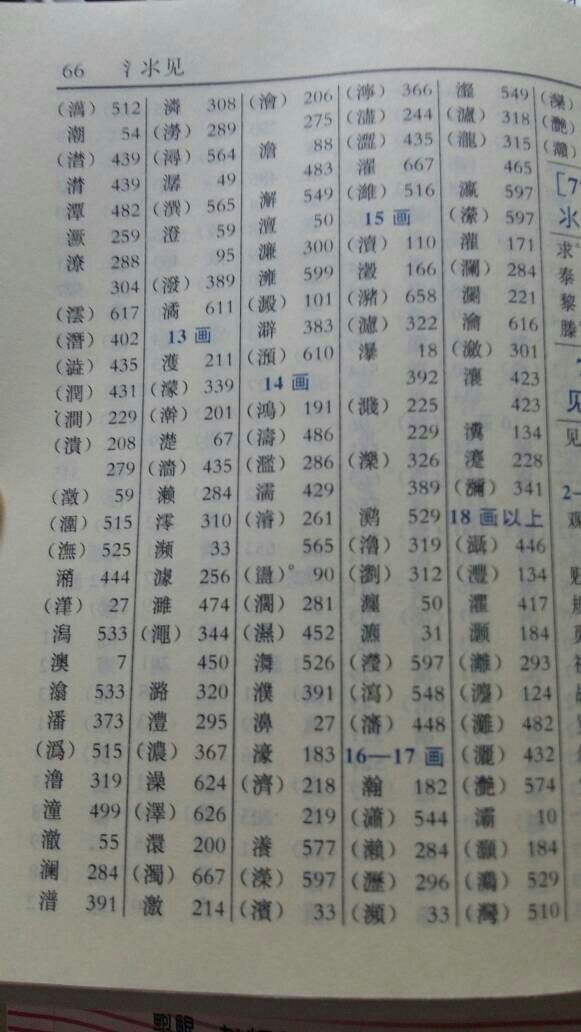 66 氵氺见
(澫) 512
潮 54
(濳) 439
潸 439
潭 482
潦 288
304
(澐) 617
(潛) 402
(澁) 435
(潤) 431
(澗) 229
(潰) 208
279
(澂) 59
(潿) 515
(潕) 525
潲 444
(潷) 27
潟 533
澳 7
潝 533
潘 373
(潙) 515
潼 499
澈 55
澜 284
潽 391
潾 308
(澇) 289
(潯) 564
潺 49
(潠) 565
澄 59
95
(潑) 389
潏 611
13 画
濩 211
(濛) 339
(澣) 201
濋 67
(濇) 435
濑 284
澪 310
濒 33
澽 256
濉 474
(澠) 344
450
潞 320
澧 295
(濃) 367
澡 624
(澤) 626
澴 200
(濁) 667
激 214
(澮) 206
275
澹 88
483
澥 549
澶 50
濂 300
澭 599
(澱) 101
澼 383
(澦) 610
14 画
(鴻) 191
(濤) 486
(濫) 286
濡 429
(濬) 261
565
(盪)° 90
(濶) 281
(濕) 452
濮 391
濞 27
濠 183
(濟) 218
219
瀁 577
(濚) 597
(濱) 33
(濘) 366
(濜) 244
(澀) 435
濯 667
(濰) 516
15 画
(瀆) 110
瀔 166
(瀦) 658
(濾) 322
瀑 18
392
(濺) 225
229
(濼) 326
389
鹲 529
(瀂) 319
(瀏) 312
瀍 50
瀌 31
(瀅) 597
(瀉) 548
(瀋) 448
16—17 画
瀚 182
(瀟) 544
(瀨) 284
(瀝) 296
(瀕) 33
瀣 549
(瀘) 318
(瀧) 315
465
瀛 597
(瀠) 597
灌 171
(瀾) 284
瀱 221
瀹 616
(瀲) 301
瀼 423
423
瀵 134
瀽 228
(瀰) 341
18 画以上
(灄) 446
(灃) 134
灈 417
灏 184
(灕) 293
(灘) 482
(灑) 432
(灧) 574
灞 10
(灝) 184
(灣) 510
求
泰
黎
滕
见